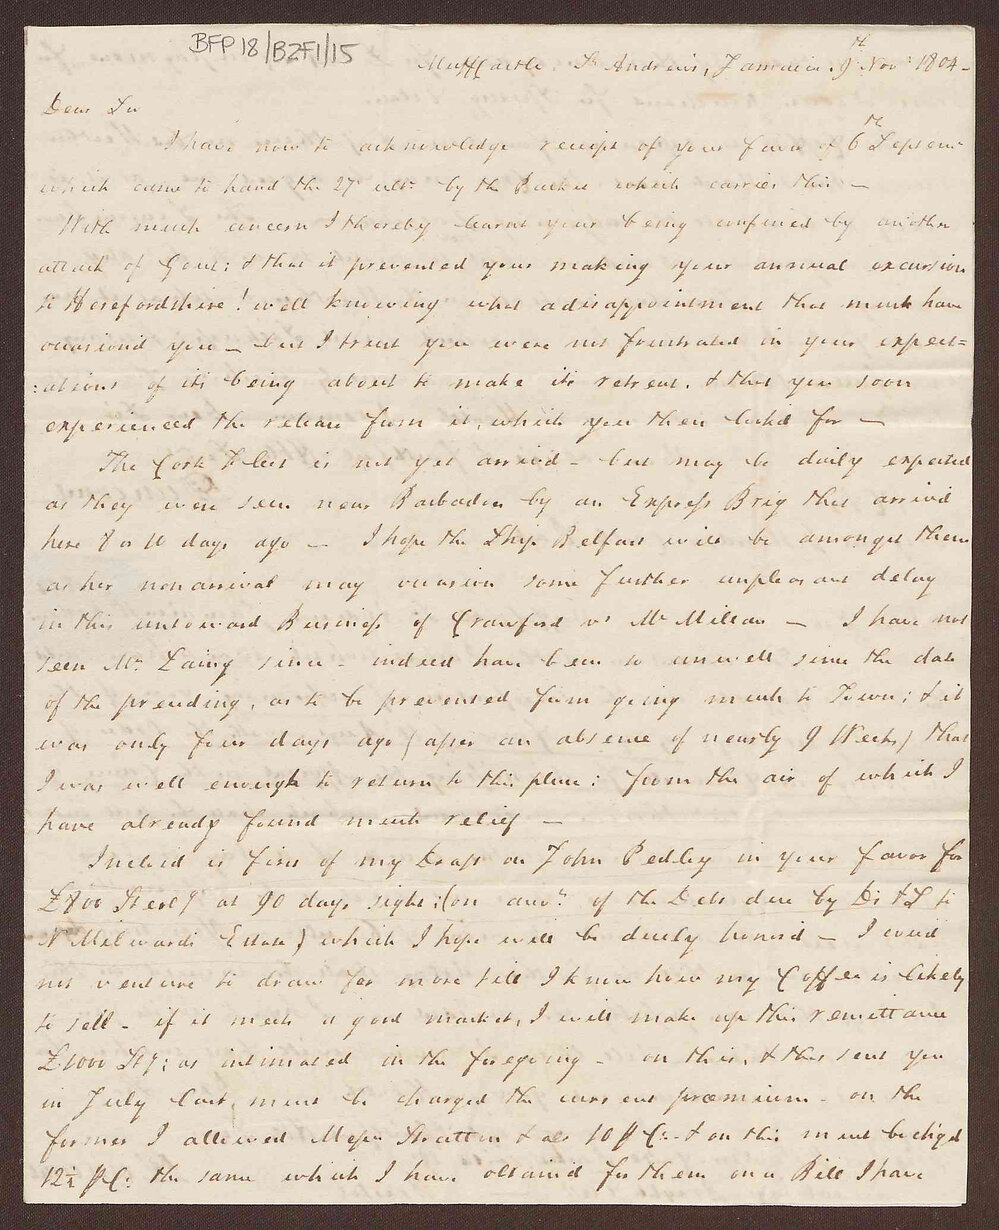 BFP 18/BZF1/15
St Andrews, Jamaica. 9th Novr 1804 –
Dear Sir
I have now to acknowledge receipt of your favor of 6th Septemr
which came to hand the 27 ulto by the Packet which carries this –
With much concern I thereby learnt your being confined by another
attack of Gout; & that it prevented your making your annual excursion
to Herefordshire! well knowing what a disappointment that must have
occasiond you – but I trust you were not frustrated in your expect=
:ations of its being about to make its retreat, & that you soon
experienced the release from it, which you then look'd for –
The Cork Fleet is not yet arrived – but may be daily expected
as they were seen near Barbados by an Express Brig that arrived
here 8 or 10 days ago – I hope the Ship Belfast will be amongst them
as her nonarrival may occasion some further unpleasant delay
in this untoward Business of Crawford vs McMillan – I have not
seen Mr Laing since – indeed have been so unwell since the date
of the preceding, as to be prevented from going much to Town; & it
was only four days ago (after an absence of nearly 9 Weeks) that
I was well enough to return to this place: from the air of which I
have already found much relief –
Inclosd is first of my Draft on John Pedley in your favor for
£800 Sterlg at 90 days sight; (on accot of the Debt due by Ds & L to
N Milwards Estate) which I hope will be duely honord – I could
not venture to draw for more till I knew how my Coffee is likely
to sell – if it meets a good market, I will make up this remittance
£1000 Stg: as intimated in the foregoing – on this, & that sent you
in July last, must be charged the current præmium – on the
former I allowed Messrs Stratton & als 10 P Ct – & on this must be chgd
12½ P Ct: the same which I have obtaind for them on a Bill I have